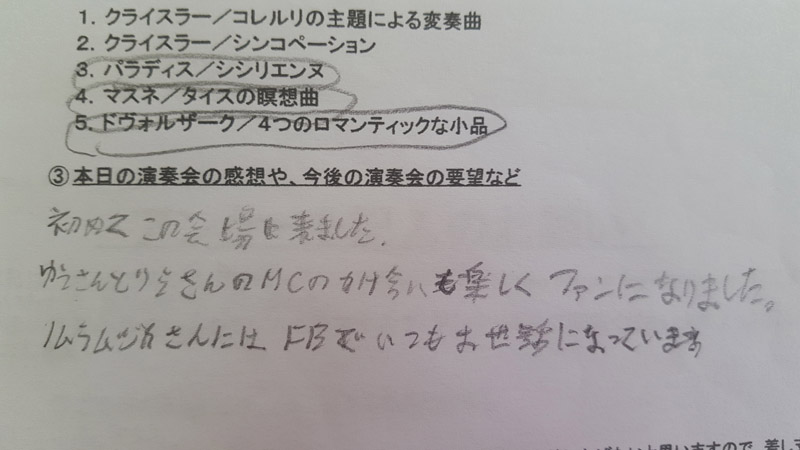 1. クライスラー／コレルリの主題による変奏曲
2. クライスラー／シンコペーション
3. パラディス／シシリエンヌ
4. マスネ／タイスの瞑想曲
5. ドヴォルザーク／４つのロマンティックな小品
③本日の演奏会の感想や、今後の演奏会の要望など
初めてこの会場に来ました。
さんとりえさんのMCのかけ合いも楽しくファンになりました。
さんには FBでいつもお世話になっています
と思いますので、差し